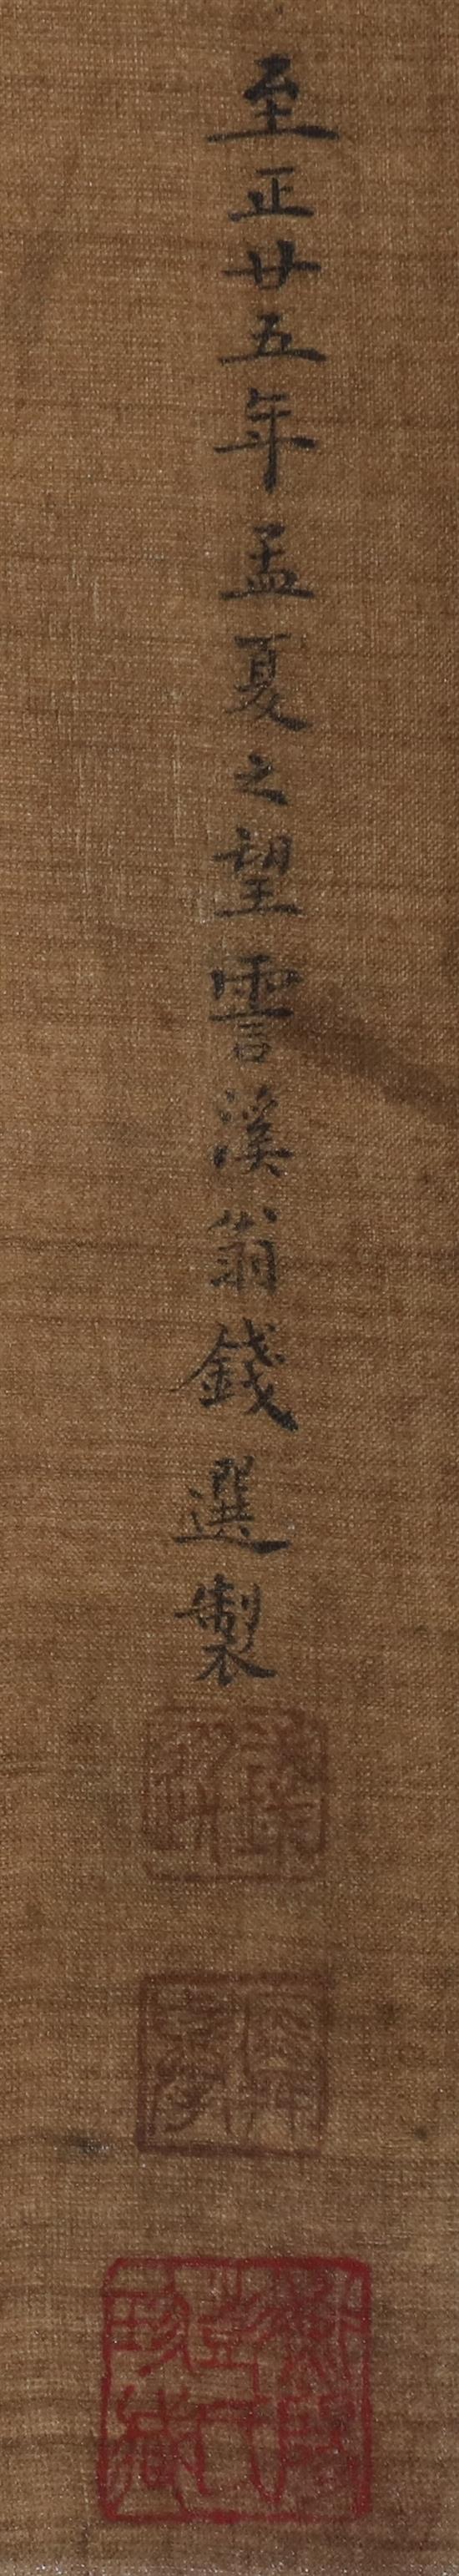 至正廿五年孟夏之望霅溪翁錢選製